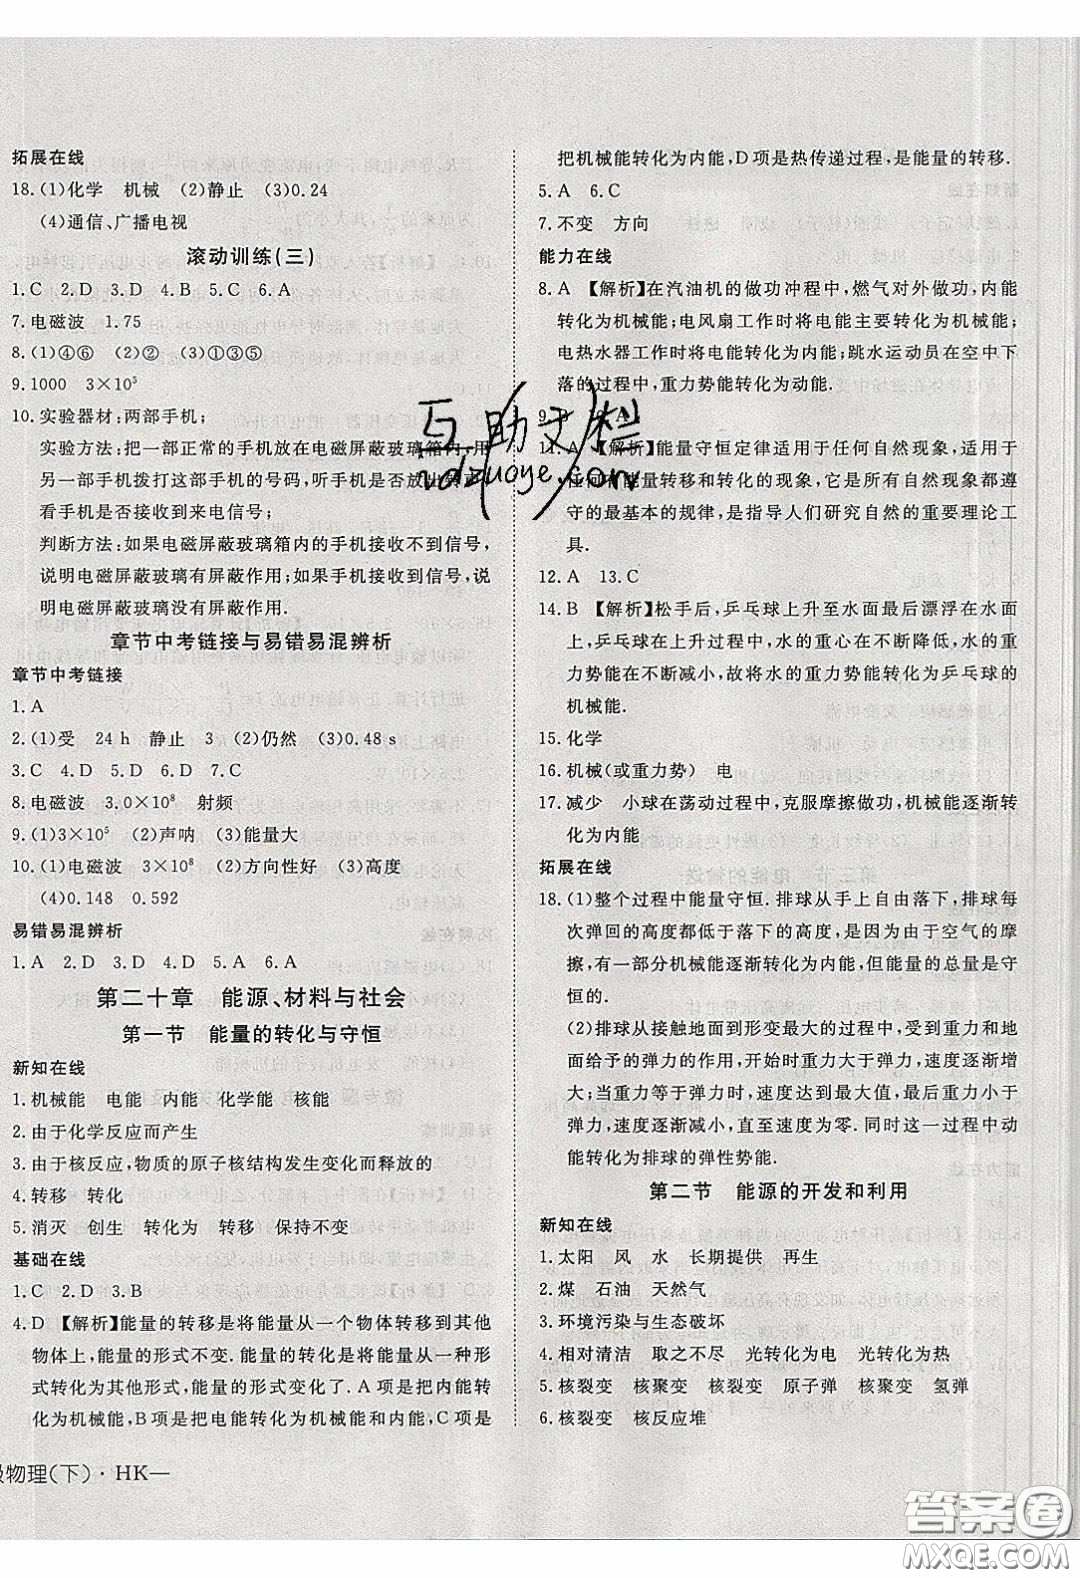 拓展在线
18.(1)化学　机械　(2)静止　(3)0.24
(4)通信、广播电视
滚动训练(三)
1.C　2.D　3.D　4.B　5.C　6.A
7.电磁波　1.75
8.(1)④⑥　(2)②　(3)①③⑤
9.1000　3×10⁵
10.实验器材:两部手机;
实验方法:把一部正常的手机放在电磁屏蔽玻璃箱内,用
另一部手机拨打这部手机的号码,听手机是否放出铃声
看手机是否接收到来电信号;
判断方法:如果电磁屏蔽玻璃箱内的手机接收不到信号,
说明电磁屏蔽玻璃有屏蔽作用;如果手机接收到信号,说
明电磁屏蔽玻璃没有屏蔽作用.
章节中考链接与易错易混辨析
章节中考链接
1.A
2.(1)受　24 h　静止　3　(2)仍然　(3)0.48 s
3.C　4.D　5.D　6.D　7.C
8.电磁波　3.0×10⁸　射频
9.(1)3×10⁵　(2)声呐　(3)能量大
10.(1)电磁波　3×10⁸　(2)方向性好　(3)高度
(4)0.148　0.592
易错易混辨析
1.A　2.D　3.D　4.D　5.A　6.A
第二十章　能源、材料与社会
第一节　能量的转化与守恒
新知在线
1.机械能　电能　内能　化学能　核能
2.由于化学反应而产生
3.由于核反应,物质的原子核结构发生变化而释放的
4.转移　转化
5.消灭　创生　转化为　转移　保持不变
基础在线
1.C　2.D　3.B
4.D　【解析】能量的转移是将能量从一个物体转移到其他
物体上,能量的形式不变.能量的转化是将能量从一种形
式转化为其他形式,能量的形式变化了.A项是把内能转
化为机械能,B项是把电能转化为机械能和内能,C项是
把机械能转化为内能,D项是热传递过程,是能量的转移.
5.A　6.C
7.不变　方向
能力在线
8.A　【解析】在汽油机的做功冲程中,燃气对外做功,内能
转化为机械能;电风扇工作时将电能主要转化为机械能;
电热水器工作时将电能转化为内能;跳水运动员在空中下
落的过程中,重力势能转化为动能.
9.B　10.A
11.A　【解析】能量守恒定律适用于任何自然现象,适用于
任何有能量转移和转化的现象,它是所有自然现象都遵
守的最基本的规律,是指导人们研究自然的重要理论工
具.
12.A　13.C
14.B　【解析】松手后,乒乓球上升至水面最后漂浮在水面
时,乒乓球在上升过程中,水的重心在不断降低,水的重
力势能在不断减小,故将水的重力势能转化为乒乓球的
机械能.
15.化学
16.机械(或重力势)　电
17.减少　小球在荡动过程中,克服摩擦做功,机械能逐渐转
化为内能
拓展在线
18.(1)整个过程中能量守恒.排球从手上自由落下,排球
每次弹回的高度都低于落下的高度,是因为由于空气的摩
擦,有一部分机械能逐渐转化为内能,但能量的总量是守
恒的.
(2)排球从接触地面到形变最大的过程中,受到重力和
地面给予的弹力的作用,开始时重力大于弹力,速度逐渐增
大;当重力等于弹力时,速度达到最大值,最后重力小于
弹力,速度逐渐减小,直至速度为零.同时这一过程中动
能转化为排球的弹性势能.
第二节　能源的开发和利用
新知在线
1.太阳　风　水　长期提供　再生
2.煤　石油　天然气
3.环境污染与生态破坏
4.相对清洁　取之不尽　光转化为电　光转化为热
5.核裂变　核聚变　核裂变　原子弹　核聚变　氢弹
6.核裂变　核反应堆
级物理(下)·HK—
互助文档
hdzuoye.com
答案圈
MXQE.COM